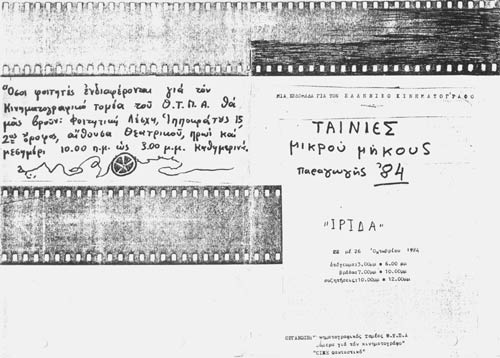 Ὅσοι φοιτητές ἐνδιαφέρονται γιά τόν
Κινηματογραφικό τομέα τοῦ Θ.Τ.Π.Α. θά
μᾶς βροῦν: Φοιτητική Λέσχη, Ἱπποκράτους 15
2ος ὄροφος, αἴθουσα Θεατρικοῦ, πρωί καί
μεσημέρι 10.00 π.μ. ὡς 3.00 μ.μ. Καθημερινά.
ΜΙΑ ΕΒΔΟΜΑΔΑ ΓΙΑ ΤΟΝ ΕΛΛΗΝΙΚΟ ΚΙΝΗΜΑΤΟΓΡΑΦΟ
ΤΑΙΝΙΕΣ
μικροῦ μήκους
παραγωγῆς '84
"ΙΡΙΔΑ"
22 μέ 26 Ὀκτωβρίου
ἀπόγευμα: 6.00 μμ
βράδυ: 7.00 μμ 10.00μμ
συζητήσεις: 10.00μμ 12.00μμ
ΟΡΓΑΝΩΣΗ: κινηματογραφικός Τομέας Θ.Τ.Π.Α
γιά τόν κινηματογράφο"